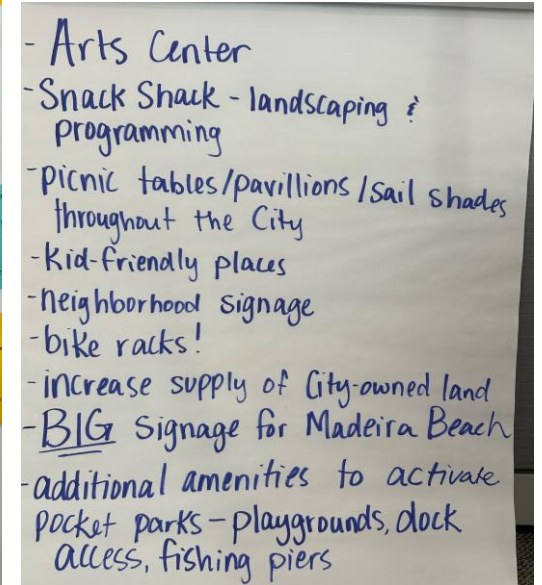 - Arts Center
- Snack Shack - landscaping &
programming
- picnic tables/pavillions/sail shades
throughout the City
- Kid-friendly places
- neighborhood signage
- bike racks!
- increase supply of City-owned land
- BIG signage for Madeira Beach
- additional amenities to activate
pocket parks - playgrounds, dock
access, fishing piers